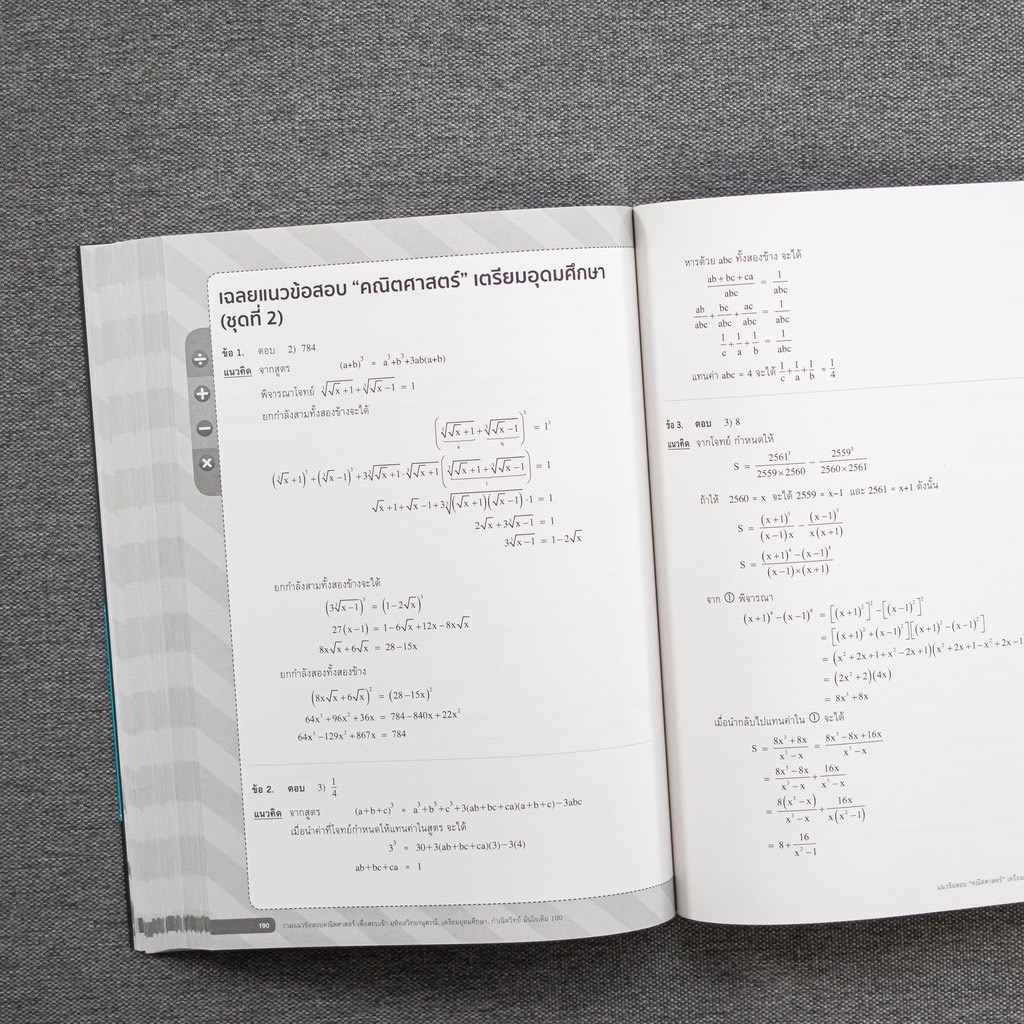 เฉลยแนวข้อสอบ “คณิตศาสตร์” เตรียมอุดมศึกษา
(ชุดที่ 2)
ข้อ 1. ตอบ 2) 784
แนวคิด จากสูตร (a+b)³ = a³+b³+3ab(a+b)
พิจารณาโจทย์ ∛(√x+1)+∛(√x−1) = 1
ยกกำลังสามทั้งสองข้างจะได้
(∛(√x+1)+∛(√x−1))³ = 1³
a b
(∛(√x+1))³+(∛(√x−1))³+3∛(√x+1)·∛(√x+1)(∛(√x+1)+∛(√x−1)) = 1
1
√x+1+√x−1+3∛((√x+1)(√x−1))·1 = 1
2√x+3∛(x−1) = 1
3∛(x−1) = 1−2√x
ยกกำลังสามทั้งสองข้างจะได้
(3∛(x−1))³ = (1−2√x)³
27(x−1) = 1−6√x+12x−8x√x
8x√x+6√x = 28−15x
ยกกำลังสองทั้งสองข้าง
(8x√x+6√x)² = (28−15x)²
64x³+96x²+36x = 784−840x+22x²
64x³−129x²+867x = 784
ข้อ 2. ตอบ 3) 1/4
แนวคิด จากสูตร (a+b+c)³ = a³+b³+c³+3(ab+bc+ca)(a+b+c)−3abc
เมื่อนำค่าที่โจทย์กำหนดให้แทนค่าในสูตร จะได้
3³ = 30+3(ab+bc+ca)(3)−3(4)
ab+bc+ca = 1
190 รวมแนวข้อสอบคณิตศาสตร์ เพื่อสอบเข้า มหิดลวิทยานุสรณ์, เตรียมอุดมศึกษา, กำเนิดวิทย์ มั่นใจเต็ม 100
หารด้วย abc ทั้งสองข้าง จะได้
(ab+bc+ca)/abc = 1/abc
ab/abc + bc/abc + ac/abc = 1/abc
1/c + 1/a + 1/b = 1/abc
แทนค่า abc = 4 จะได้ 1/c + 1/a + 1/b = 1/4
ข้อ 3. ตอบ 3) 8
แนวคิด จากโจทย์ กำหนดให้
S = 2561³/(2559×2560) − 2559³/(2560×2561)
ถ้าให้ 2560 = x จะได้ 2559 = x−1 และ 2561 = x+1 ดังนั้น
S = (x+1)³/((x−1)x) − (x−1)³/(x(x+1))
S = ((x+1)⁴−(x−1)⁴)/((x−1)×(x+1))
จาก ① พิจารณา
(x+1)⁴−(x−1)⁴ = [(x+1)²]²−[(x−1)²]²
= [(x+1)²+(x−1)²][(x+1)²−(x−1)²]
= (x²+2x+1+x²−2x+1)(x²+2x+1−x²+2x−1
= (2x²+2)(4x)
= 8x³+8x
เมื่อนำกลับไปแทนค่าใน ① จะได้
S = (8x³+8x)/(x³−x) = (8x³−8x+16x)/(x³−x)
= (8x³−8x)/(x³−x) + 16x/(x³−x)
= 8(x³−x)/(x³−x) + 16x/(x(x²−1))
= 8+16/(x²−1)
แนวข้อสอบ “คณิตศาสตร์”